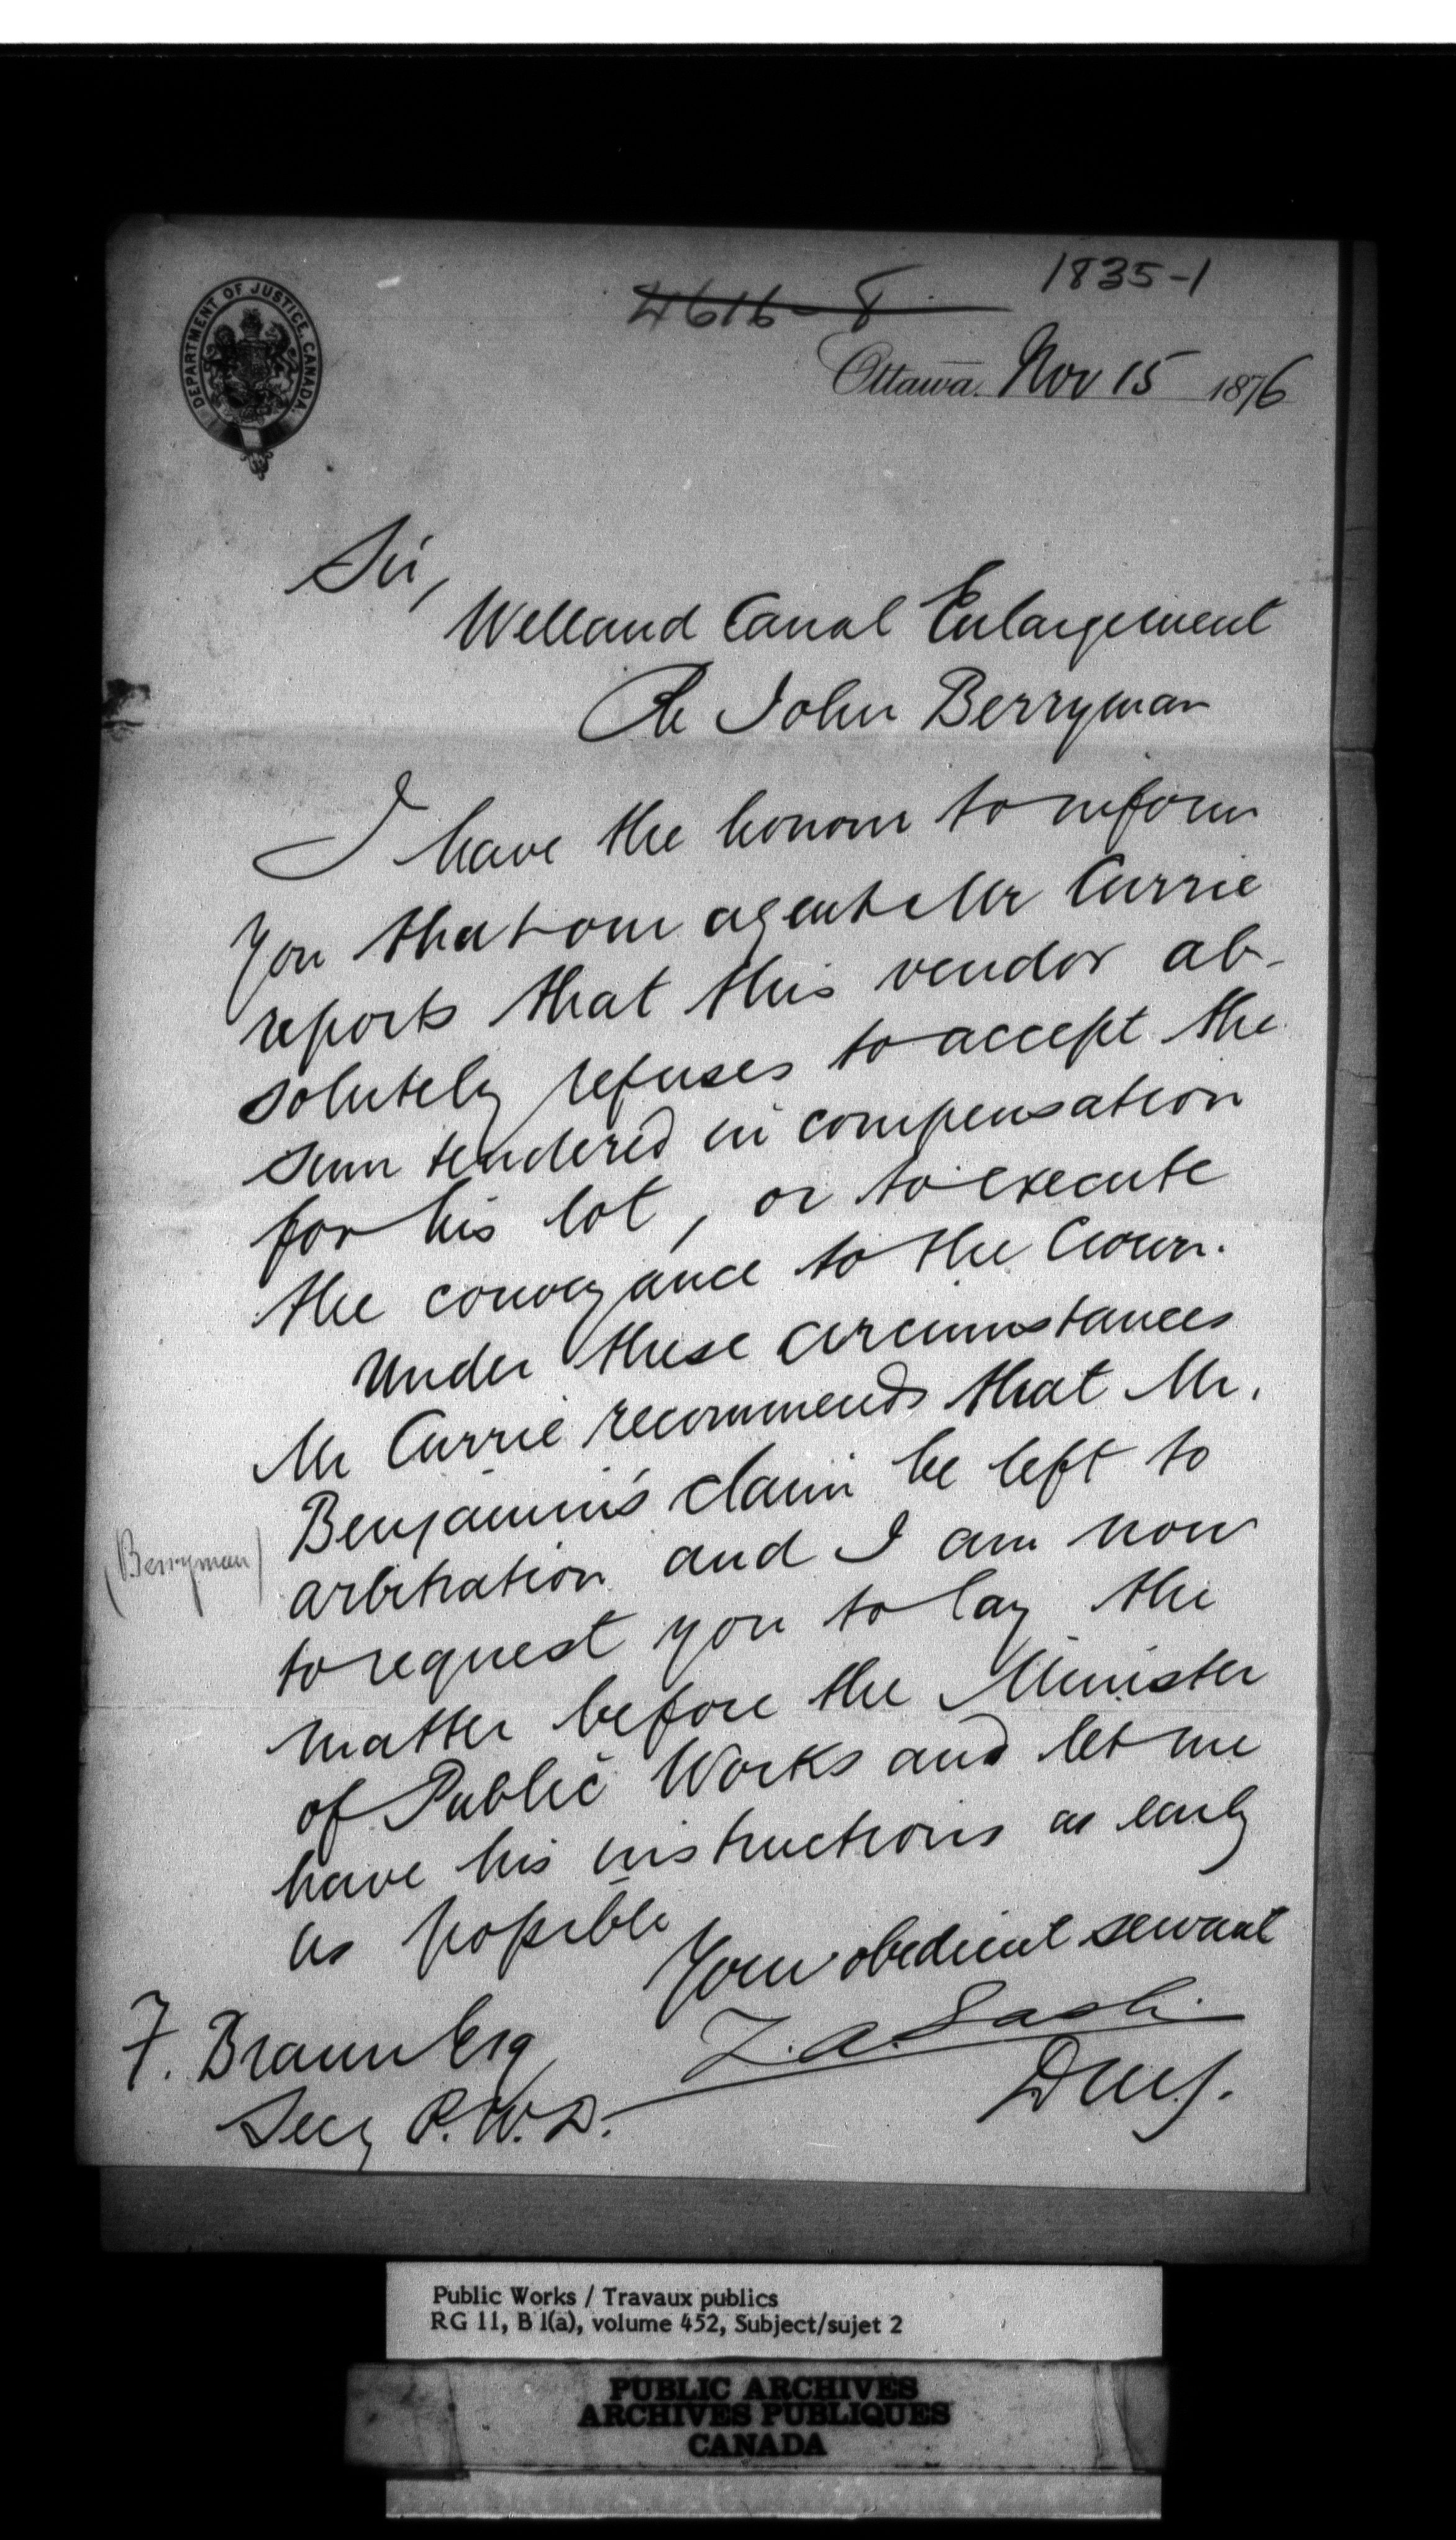 DEPARTMENT OF JUSTICE, CANADA.
4616-8
1835-1
Ottawa. Nov 15 1876
Sir,
Welland Canal Enlargement
Re John Berryman
I have the honour to inform
you that our agent Mr Currie
reports that this vendor ab-
solutely refuses to accept the
sum tendered in compensation
for his lot, or to execute
the conveyance to the Crown.
Under these circumstances
Mr Currie recommends that Mr.
Benjamin's claim be left to
(Berryman)
arbitration and I am now
to request you to lay the
matter before the Minister
of Public Works and let me
have his instructions as early
as possible
Your obedient servant
Z. A. Lash
D M J.
F. Braun Esq
Secy P.W.D.
Public Works / Travaux publics
RG 11, B 1(a), volume 452, Subject/sujet 2
PUBLIC ARCHIVES
ARCHIVES PUBLIQUES
CANADA